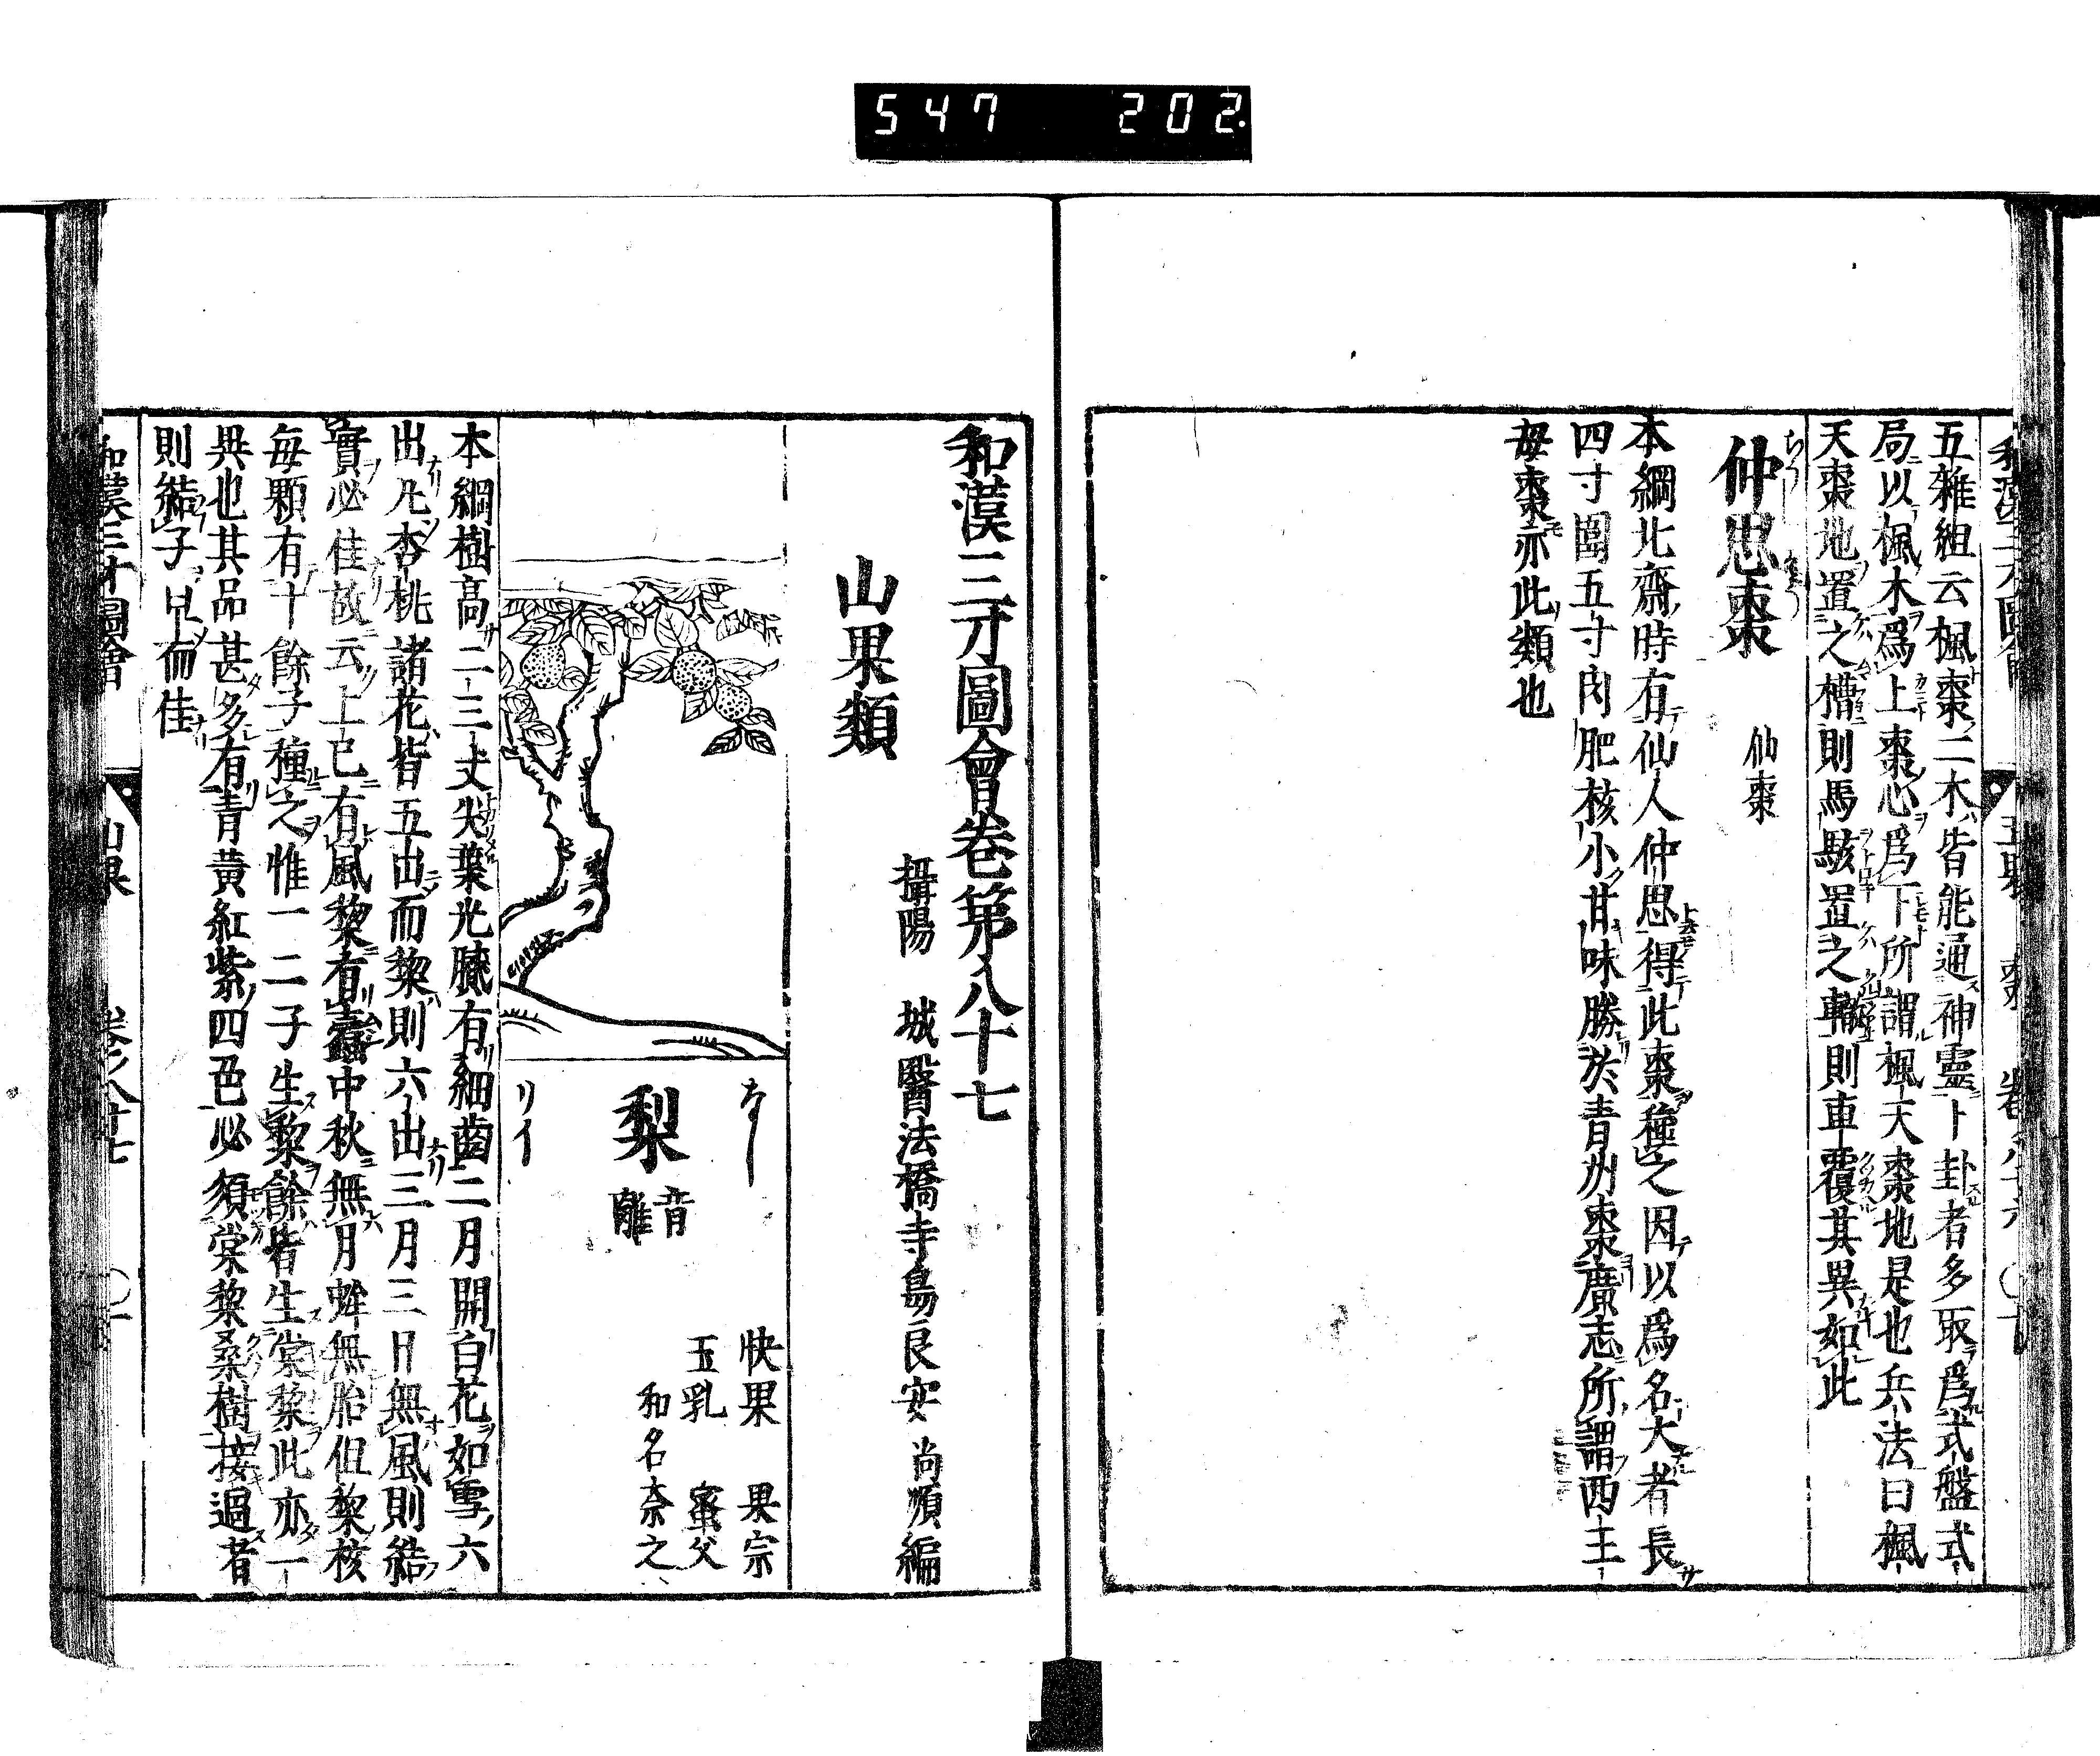 547 202
五雜組云楓棗二木皆能通神靈卜卦者多取爲式盤式
局以楓木爲上棗心爲下所謂楓天棗地是也兵法曰楓
天棗地置之槽則馬駭置之轍則車覆其異如此
仲思棗 仙棗
本綱北齋時有仙人仲思得此棗種之因以爲名大者長
四寸圍五寸肉肥核小甘味勝於青州棗廣志所謂西王
母棗亦此類也
和漢三才圖會卷第八十七
攝陽 城醫法橋寺島良安尚順編
山果類
なし
梨
音離
リイ
快果 果宗
玉乳 蜜父
和名奈之
本綱樹高二三丈尖葉光膩有細齒二月開白花如雪六
出凡杏桃諸花皆五出而棃則六出三月三日無風則結
實必佳故云上巳有風棃有蠧中秋無月蚌無胎但棃核
毎顆有十餘子種之惟一二子生棃餘皆生棠棃此亦一
異也其品甚多有青黃紅紫四色必須棠棃桑樹接過者
則結子早而佳
和漢三才圖會 山果 卷之八十七